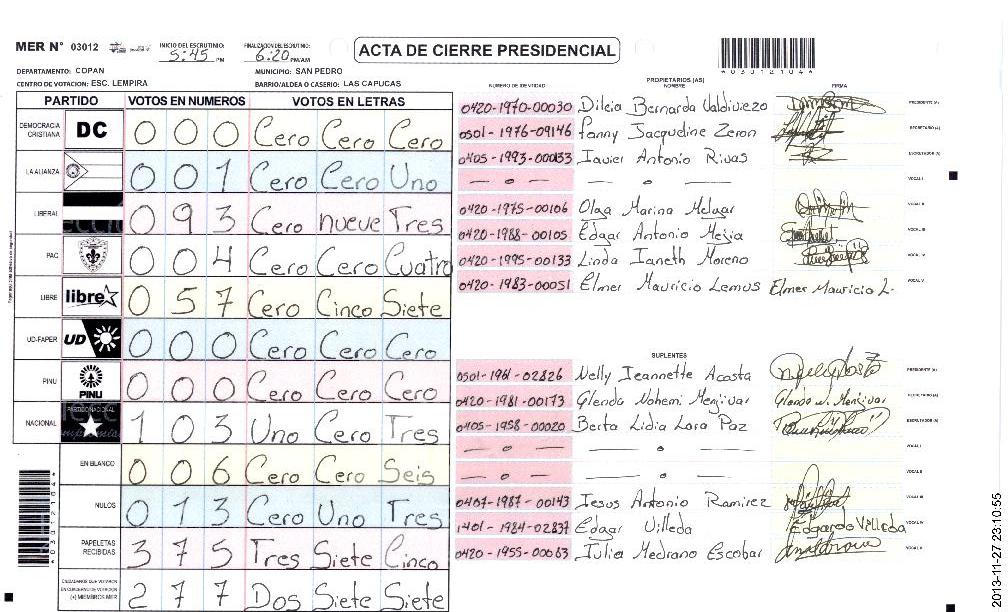 MER N° 03012
INICIO DEL ESCRUTINIO: 5:45 PM
FINALIZACION DEL ESCRUTINIO: 6:20 PM/AM
ACTA DE CIERRE PRESIDENCIAL
*03012104*
DEPARTAMENTO: COPAN MUNICIPIO: SAN PEDRO
CENTRO DE VOTACION: ESC. LEMPIRA BARRIO/ALDEA O CASERIO: LAS CAPUCAS
PARTIDO VOTOS EN NUMEROS VOTOS EN LETRAS
DEMOCRACIA CRISTIANA DC 0 0 0 Cero Cero Cero
LA ALIANZA 0 0 1 Cero Cero Uno
LIBERAL 0 9 3 Cero nueve Tres
PAC 0 0 4 Cero Cero Cuatro
LIBRE libre 0 5 7 Cero Cinco Siete
UD-FAPER UD 0 0 0 Cero Cero Cero
PINU PINU 0 0 0 Cero Cero Cero
NACIONAL PARTIDO NACIONAL 1 0 3 Uno Cero Tres
EN BLANCO 0 0 6 Cero Cero Seis
NULOS 0 1 3 Cero Uno Tres
PAPELETAS RECIBIDAS 3 7 5 Tres Siete Cinco
CIUDADANOS QUE VOTARON EN CUADERNO DE VOTACION (+) MIEMBROS MER 2 7 7 Dos Siete Siete
*03012104*
PROPIETARIOS (AS)
NUMERO DE IDENTIDAD NOMBRE FIRMA
0420-1970-00030 Dilcia Bernarda Valdiviezo PRESIDENTE (A)
0501-1976-09146 Fanny Jacqueline Zeron SECRETARIO (A)
0405-1993-00033 Javier Antonio Rivas ESCRUTADOR (A)
— o — — o — VOCAL I
0420-1975-00106 Olga Marina Melgar VOCAL II
0420-1988-00105 Edgar Antonio Mejia VOCAL III
0420-1995-00133 Linda Janeth Moreno VOCAL IV
0420-1983-00051 Elmer Mauricio Lemus Elmer Mauricio L. VOCAL V
SUPLENTES
0501-1961-02826 Nelly Jeannette Acosta PRESIDENTE (A)
0420-1981-00173 Glenda Nohemi Menjivar Glenda N. Menjivar SECRETARIO (A)
0405-1958-00020 Berta Lidia Lara Paz ESCRUTADOR (A)
— o — — o — VOCAL I
— o — — o — VOCAL II
0467-1987-00143 Jesus Antonio Ramirez VOCAL III
1401-1984-02837 Edgar Villeda Edgardo Villeda VOCAL IV
0420-1955-00063 Julia Medrano Escobar VOCAL V
2013-11-27 23:10:55